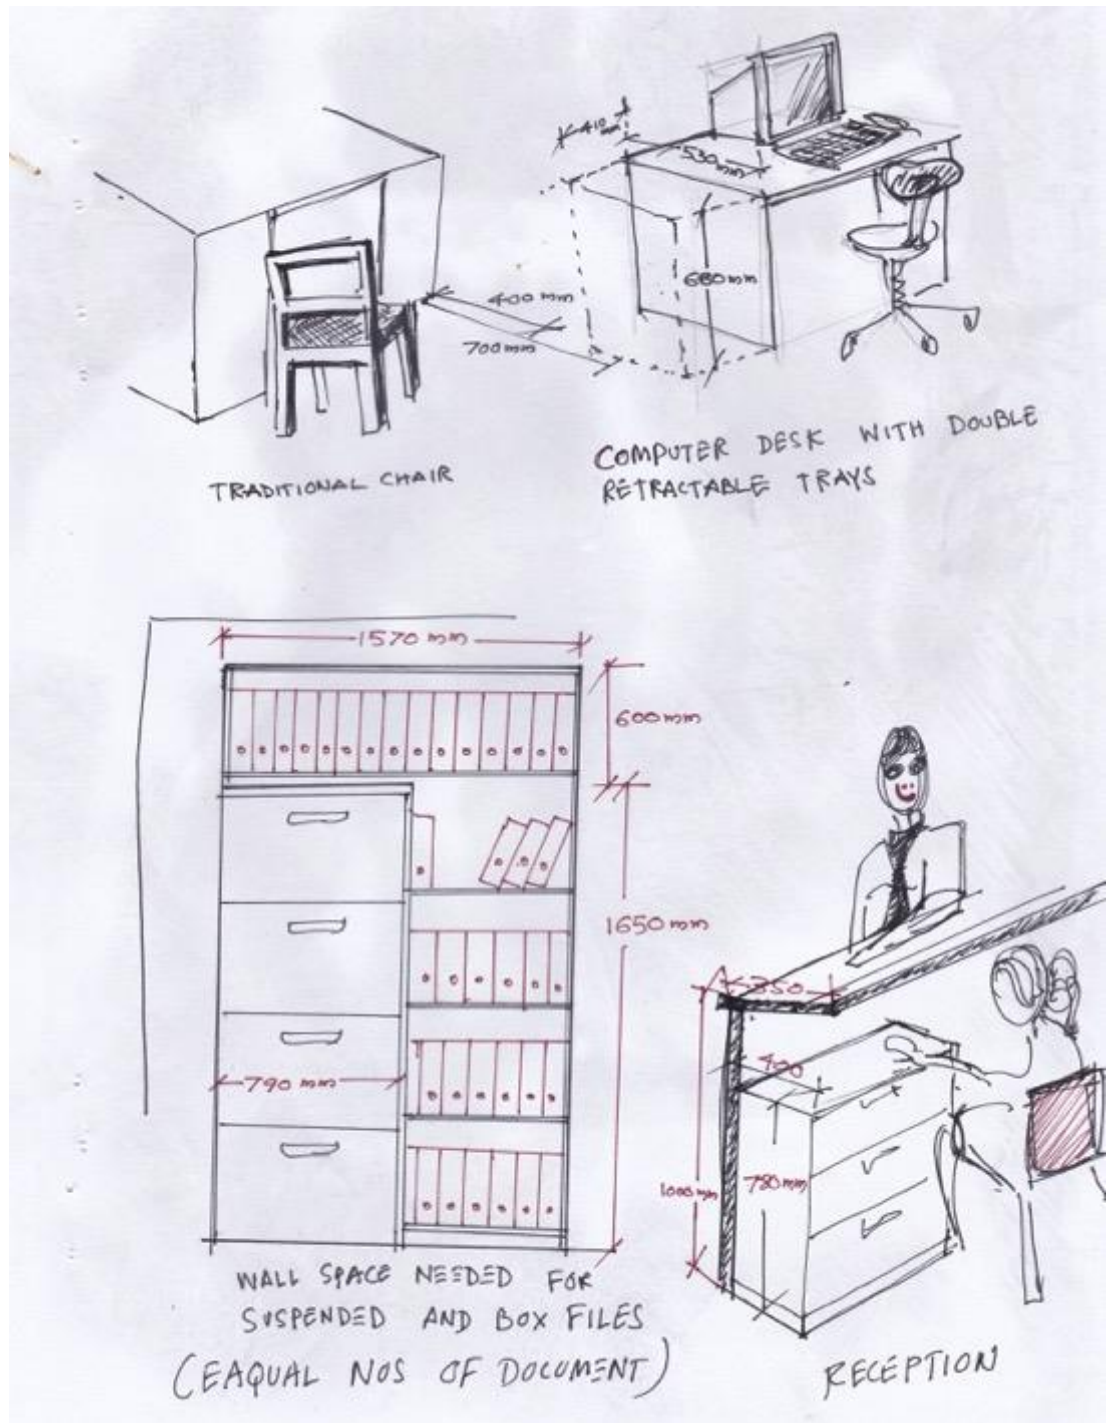 410 mm
530 mm
680mm
400 mm
700mm
TRADITIONAL CHAIR
COMPUTER DESK WITH DOUBLE
RETRACTABLE TRAYS
1570 mm
600mm
1650mm
790 mm
350
400
1000mm
780mm
WALL SPACE NEEDED FOR
SUSPENDED AND BOX FILES
(EAQUAL NOS OF DOCUMENT)
RECEPTION